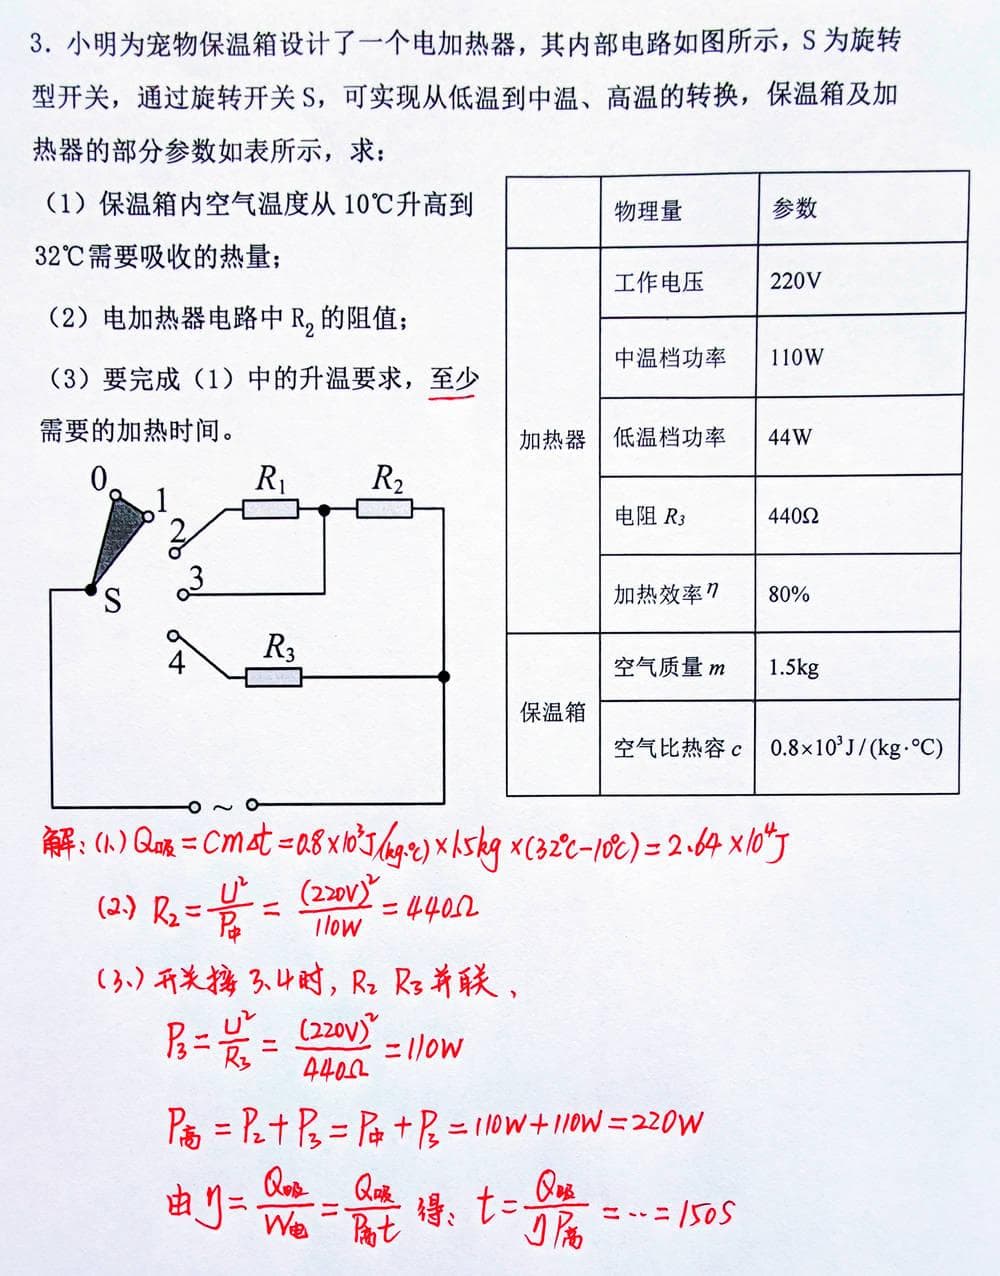 3. 小明为宠物保温箱设计了一个电加热器，其内部电路如图所示，S 为旋转
型开关，通过旋转开关 S，可实现从低温到中温、高温的转换，保温箱及加
热器的部分参数如表所示，求：
（1）保温箱内空气温度从 10℃升高到
32℃需要吸收的热量；
（2）电加热器电路中 R₂ 的阻值；
（3）要完成（1）中的升温要求，至少
需要的加热时间。
物理量 参数
加热器
工作电压 220V
中温档功率 110W
低温档功率 44W
电阻 R₃ 440Ω
加热效率 η 80%
保温箱
空气质量 m 1.5kg
空气比热容 c 0.8×10³J/(kg·℃)
0
1
2
3
4
S
R₁
R₂
R₃
~
解：(1.) Q吸=cm△t=0.8×10³J/(kg·℃)×1.5kg×(32℃-10℃)=2.64×10⁴J
(2.) R₂=U²/P中=(220V)²/110W=440Ω
(3.) 开关接 3、4时，R₂ R₃ 并联、
P₃=U²/R₃=(220V)²/440Ω=110W
P高=P₂+P₃=P中+P₃=110W+110W=220W
由η=Q吸/W电=Q吸/P高t 得：t=Q吸/ηP高=…=150S